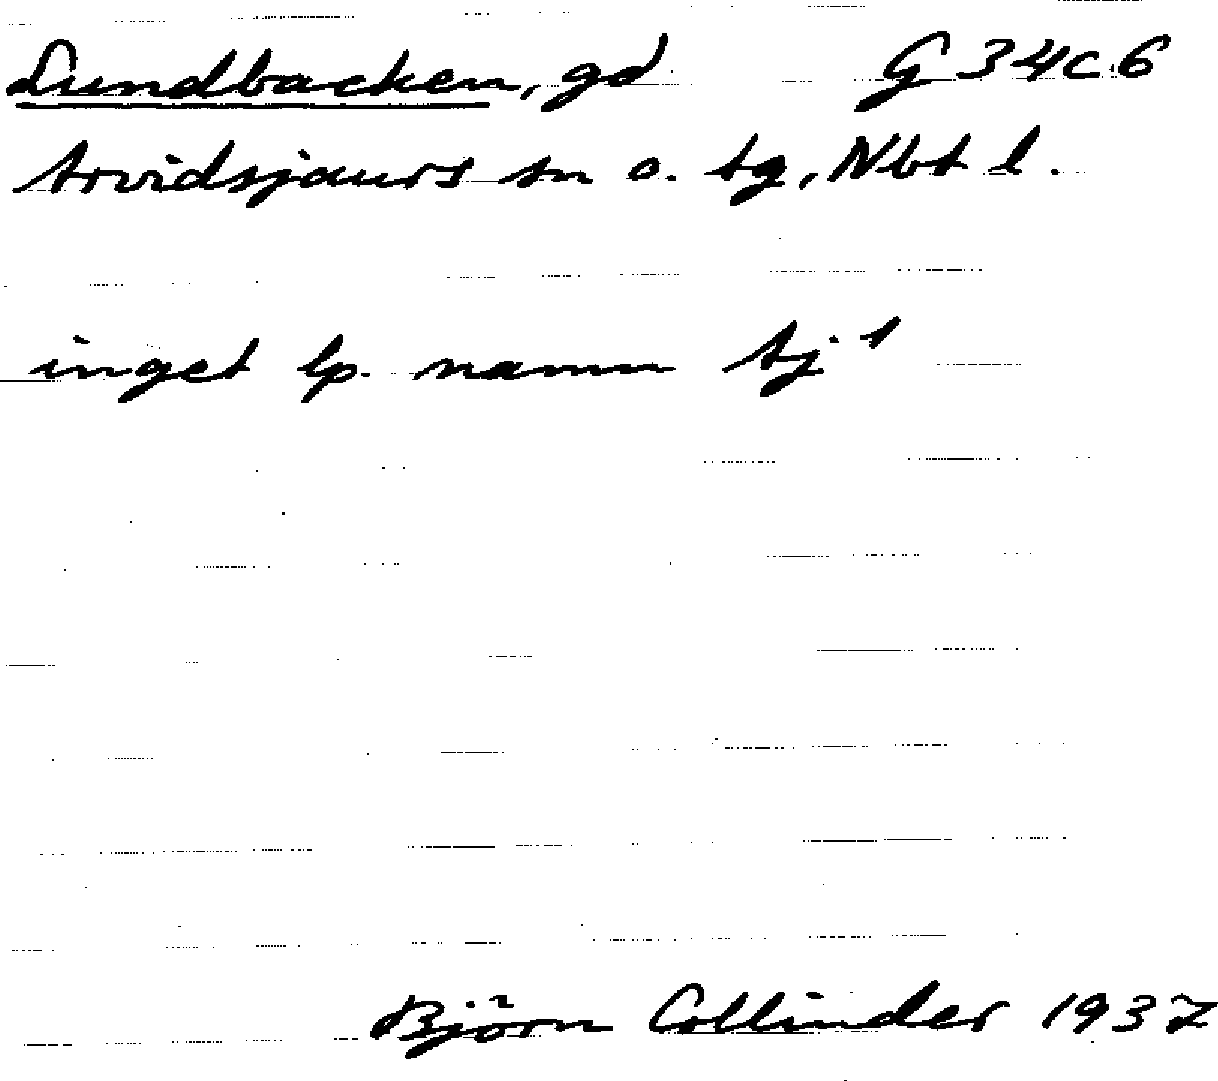 Lundbacken, gd G 34c6
Arvidsjaurs sn o. tg, Nbt l.
inget lp. namn Aj¹
Björn Collinder 1937